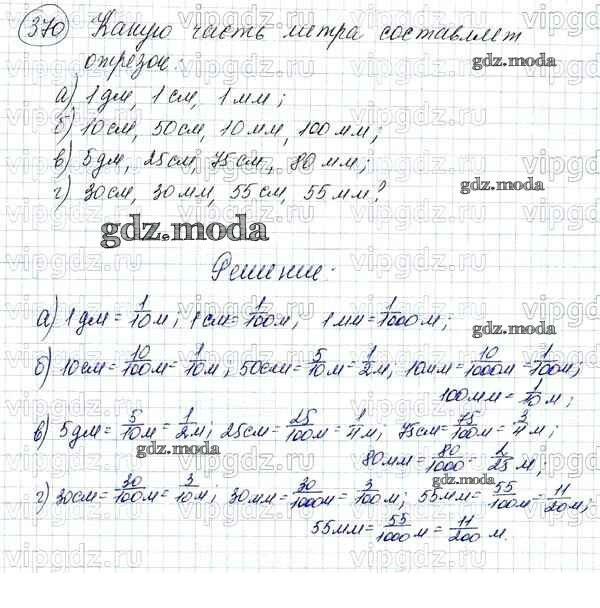 370 Какую часть метра составляет
отрезок:
а) 1 дм, 1 см, 1 мм;
б) 10 см, 50 см, 10 мм, 100 мм;
в) 5 дм, 25 см, 75 см, 80 мм;
г) 30 см, 30 мм, 55 см, 55 мм?
gdz.moda
Решение.
а) 1 дм = 1/10 м; 1 см = 1/100 м; 1 мм = 1/1000 м;
б) 10 см = 10/100 м = 1/10 м; 50 см = 5/10 м = 1/2 м; 10 мм = 10/1000 м = 1/100 м;
100 мм = 1/10 м;
в) 5 дм = 5/10 м = 1/2 м; 25 см = 25/100 м = 1/4 м; 75 см = 75/100 м = 3/4 м;
80 мм = 80/1000 = 2/25 м;
г) 30 см = 30/100 м = 3/10 м; 30 мм = 30/1000 м = 3/100 м; 55 мм = 55/100 м = 11/20 м;
55 мм = 55/1000 м = 11/200 м.